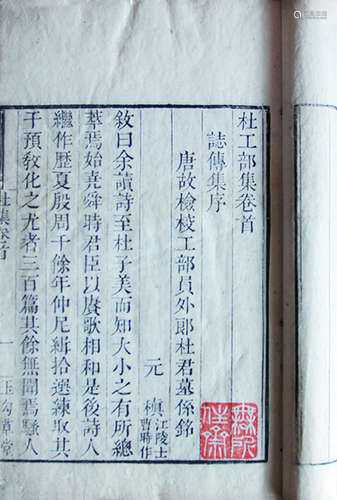 杜工部集卷首
誌傳集序
唐故檢校工部員外郎杜君墓係銘
元稹江陵士曹時作
敘曰余讀詩至杜子美而知大小之有所總
萃焉始堯舜時君臣以賡歌相和是後詩人
繼作歷夏殷周千餘年仲尼緝拾選練取其
干預教化之尤者三百篇其餘無聞焉騷人
杜集卷首
一
玉勾草堂